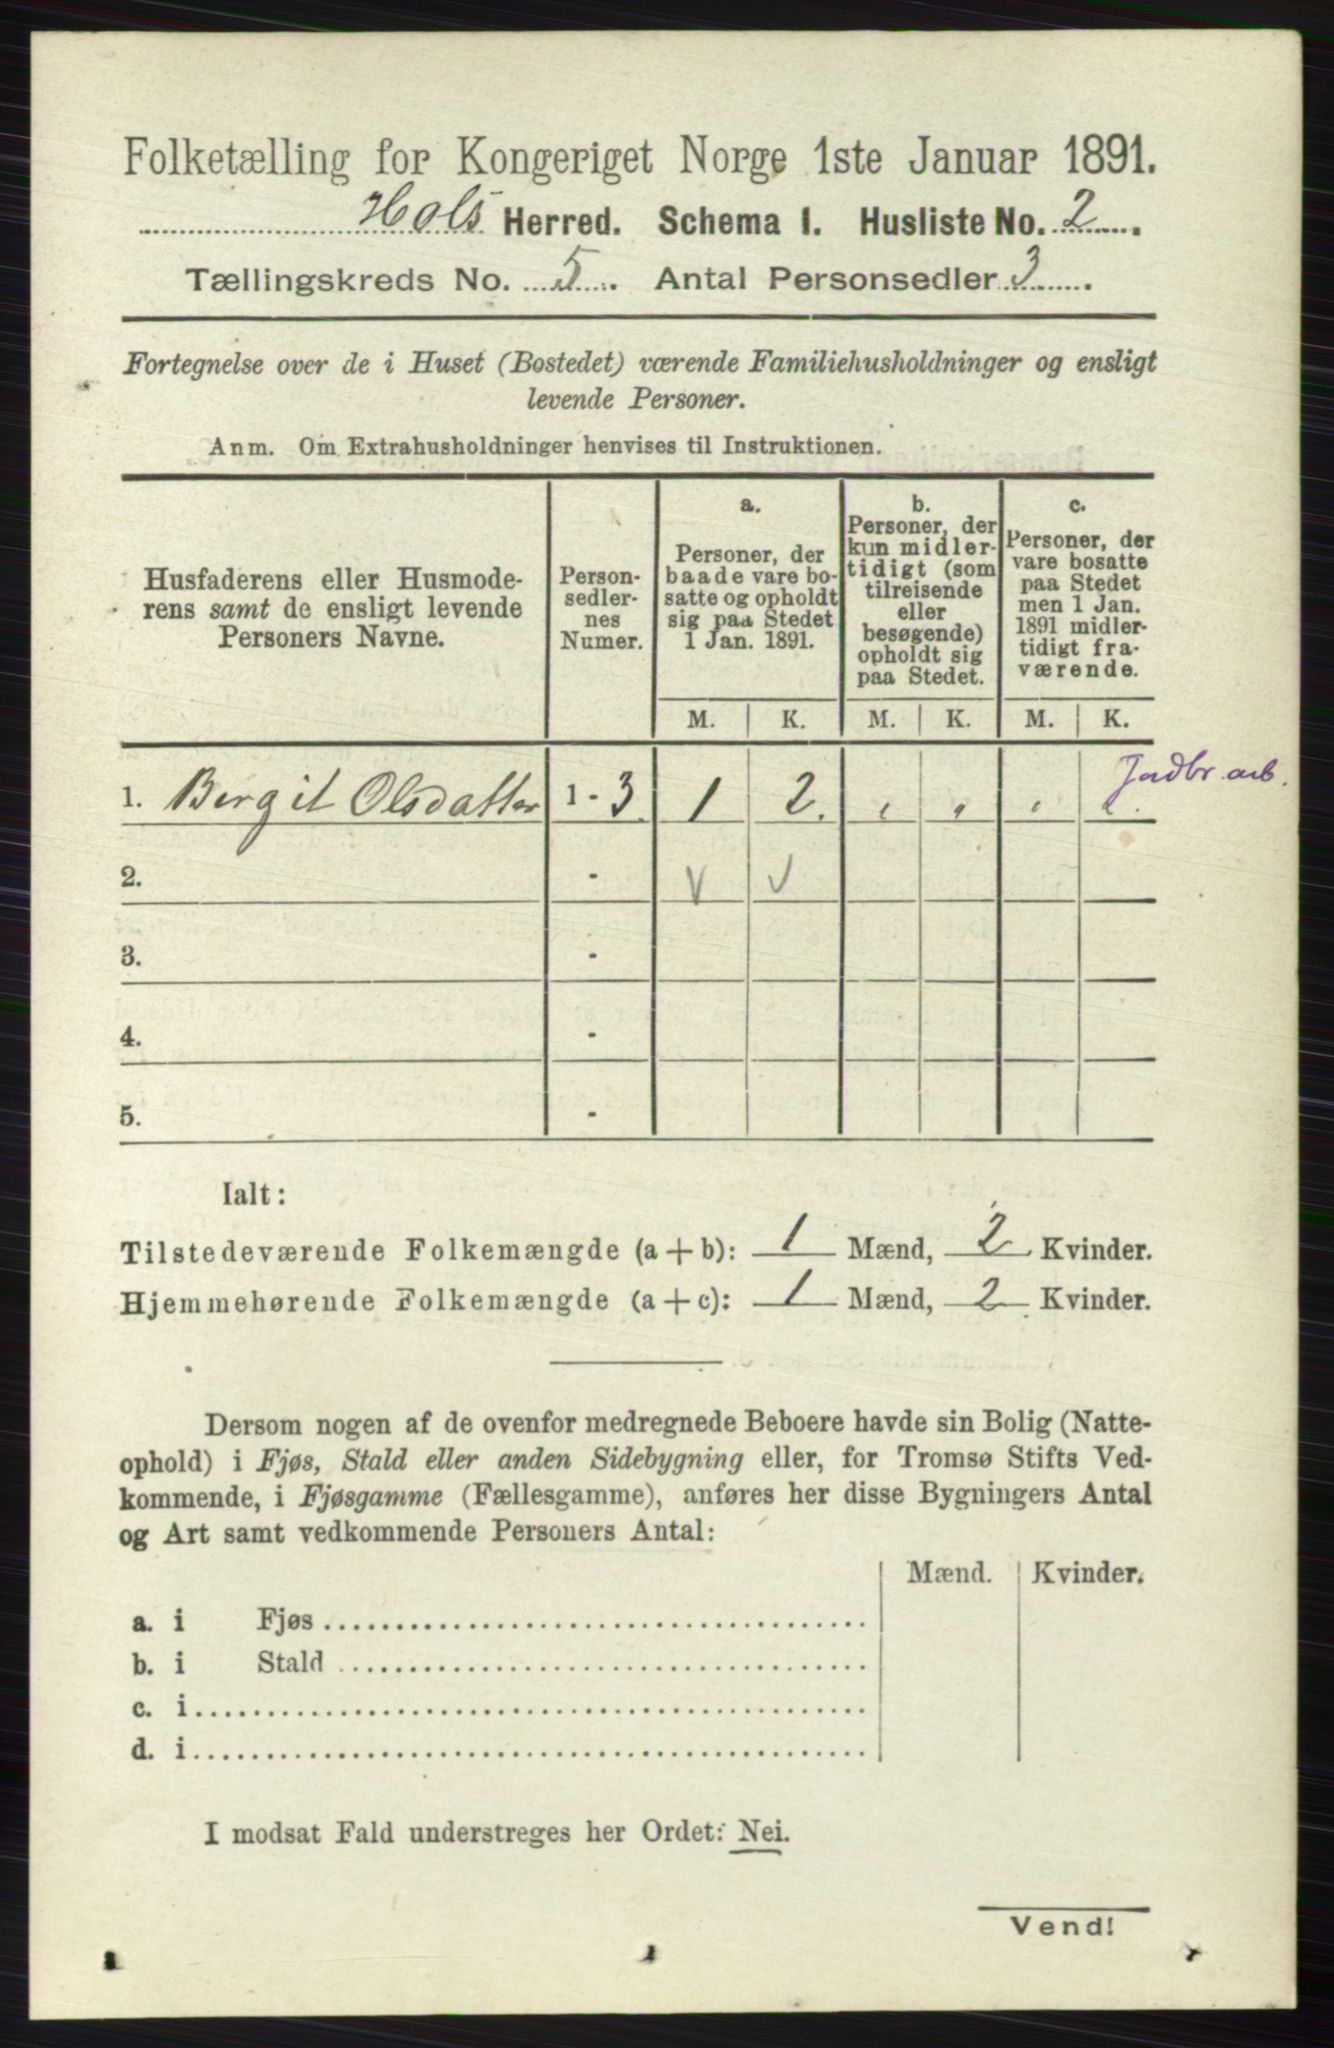 Folketælling for Kongeriget Norge 1ste Januar 1891.
Hols Herred. Schema 1. Husliste No. 2.
Tællingskreds No. 5. Antal Personsedler 3.
Fortegnelse over de i Huset (Bostedet) værende Familiehusholdninger og ensligt
levende Personer.
Anm. Om Extrahusholdninger henvises til Instruktionen.
Husfaderens eller Husmode-
rens samt de ensligt levende
Personers Navne.
Person-
sedler-
nes
Numer.
a.
Personer, der
baade vare bo-
satte og opholdt
sig paa Stedet
1 Jan. 1891.
b.
Personer, der
kun midler-
tidigt (som
tilreisende
eller
besøgende)
opholdt sig
paa Stedet.
c.
Personer, der
vare bosatte
paa Stedet
men 1 Jan.
1891 midler-
tidigt fra-
værende.
M. K. M. K. M. K.
Jndbr. arb.
1. Bergit Olsdatter 1 - 3 1 2. „ „ „ „
2. - V V
3. -
4. -
5. -
Ialt:
Tilstedeværende Folkemængde (a + b): 1 Mænd, 2 Kvinder.
Hjemmehørende Folkemængde (a + c): 1 Mænd, 2 Kvinder.
Dersom nogen af de ovenfor medregnede Beboere havde sin Bolig (Natte-
ophold) i Fjøs, Stald eller anden Sidebygning eller, for Tromsø Stifts Ved-
kommende, i Fjøsgamme (Fællesgamme), anføres her disse Bygningers Antal
og Art samt vedkommende Personers Antal:
Mænd. Kvinder.
a. i Fjøs
b. i Stald
c. i
d. i
I modsat Fald understreges her Ordet: Nei.
Vend!